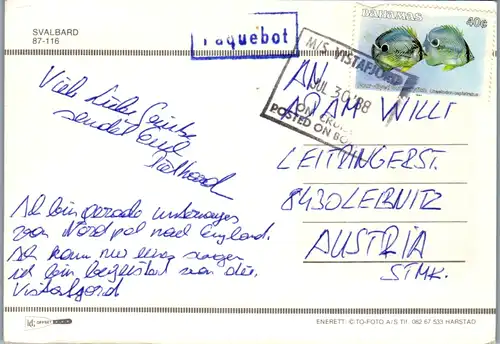 SVALBARD
87-116
Paquebot
BAHAMAS 40¢
M/S VISTAFJORD
JUL 30 '88
ON CRUISE
POSTED ON BO
Viele liebe Grüsse
sendet Euch
AN
ADAM WILLI
LEITRINGERST.
8430 LEIBNITZ
AUSTRIA
STMK.
Ich bin gerade unterwegs
vom Nordpol nach England.
Ich kann nur eines sagen
ich bin begeistert von der
Vistafjord
ENERETT: © TO-FOTO A/S Tlf. 082 67 533 HARSTAD